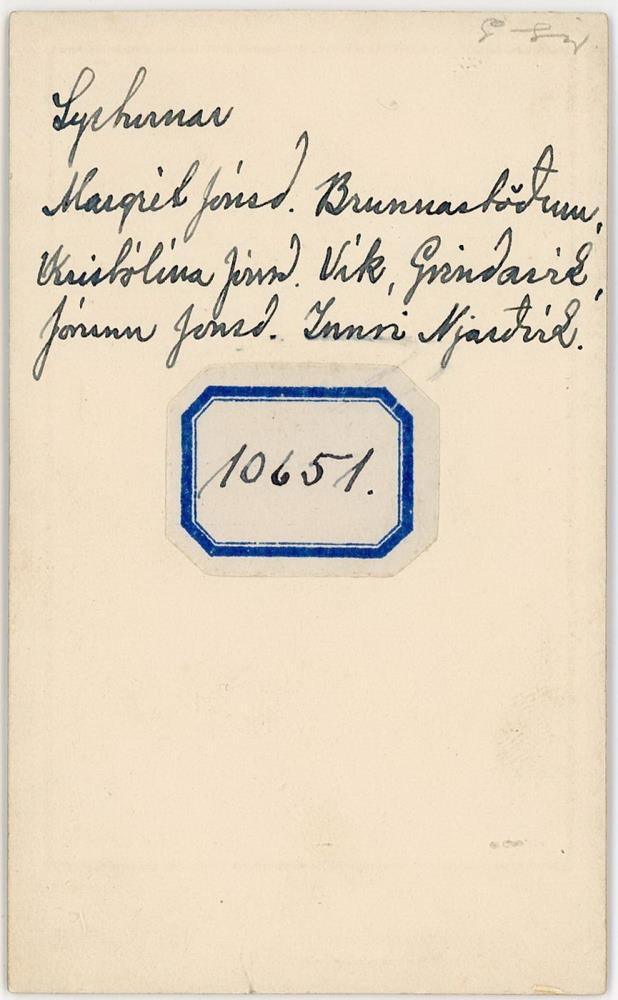 Systurnar
Margrét Jónsd. Brunnastöðum,
Kristólína Jónsd. Vík, Grindavík,
Jórunn Jónsd. Innri Njarðvík.
10651.